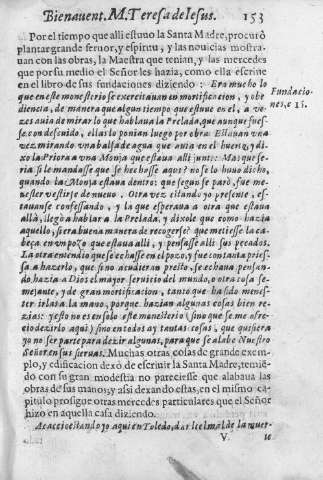 Bienauent. M. Teresa de Iesus. 153
Por el tiempo que alli estuuo la Santa Madre, procurò
plantar grande feruor, y espiritu, y las nouicias mostra-
uan con las obras, la Maestra que tenian, y las mercedes
que por su medio el Señor les hazia, como ella escriue
en el libro de sus fundaciones diziendo: Era mucho lo
que en este monesterio se exercitauan en mortificacion, y obe
diencia, de manera que algun tiempo que estuue en el, a ve-
zes auia de mirar lo que hablaua la Prelada, que aunque fues-
se con descuido, ellas lo ponian luego por obra. Estauan vna
vez mirando vna balsa de agua que auia en el huerto, y di-
xo la Priora a vna Monja que estaua alli junto: Mas que se-
ria si le mandasse que se hechasse aqui? no se lo huuo dicho,
quando la Monja estaua dentro: que segun se parò, fue me-
nester vestirse de nueuo. Otra vez estando yo presente, es-
tauanse confessando, y la que esperaua a otra que estaua
allà, llegò a hablar a la Prelada, y dixole que como hazia
aquello, si era buena manera de recogerse? que metiesse la ca-
beça en vn poço que estaua alli, y pensasse alli sus pecados.
La otra entendio que se echasse en el pozo, y fue con tanta pries-
sa a hazerlo, que sino acudieran presto, se echaua pensan-
do, hazia a Dios el mayor seruicio del mundo, o otra cosa se-
mejante, y de gran mortificacion, tanto que ha sido menes-
ter irlas a la mano, porque hazian algunas cosas bien re-
zias: y esto no es en solo este monesterio (sino que se me ofre-
cio dezirlo aqui) sino en todos ay tantas cosas, que quisiera
yo no ser parte para dezir algunas, para que se alabe Nuestro
Señor en sus sieruas. Muchas otras cosas de grande exem-
plo, y edificacion dexò de escriuir la Santa Madre, temiẽ-
do con su gran modestia no pareciesse que alabaua las
obras de sus manos; y assi dexando estas, en el mismo ca-
pitulo prosigue otras mercedes particulares que el Señor
hizo en aquella casa diziendo.
Acaecio estando yo aqui en Toledo, darle el mal de la muer-
V. te
Fundacio-
nes, c 15.